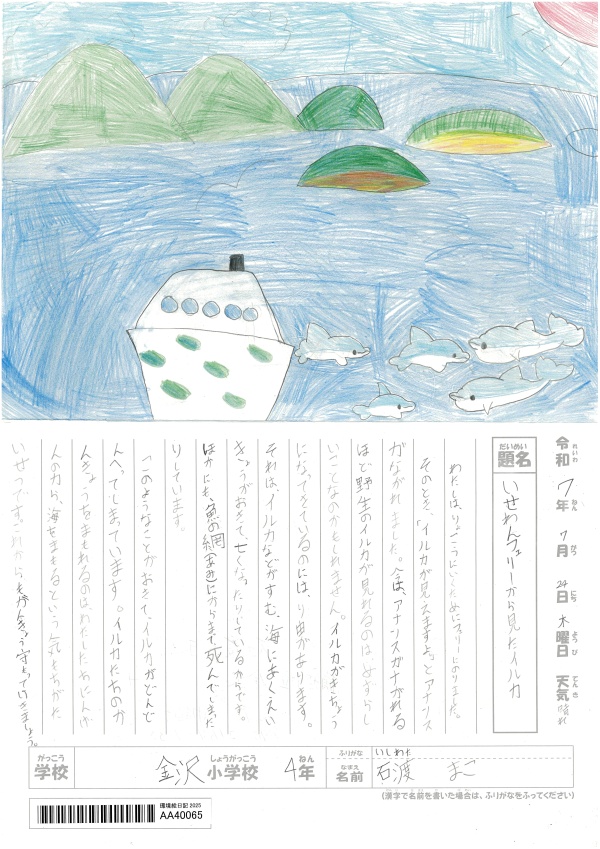 令和れいわ 7年ねん 7月がつ 24日にち 木曜日ようび 天気てんき 晴れ
題名だいめい いせわんフェリーから見たイルカ
わたしは、りょこうにいくためにフェリーにのりました。
そのとき、「イルカが見えますよ。」とアナウンス
がながれました。今は、アナウンスがながれる
ほど野生のイルカが見れるのはめずらし
いことなのかもしれません。イルカがきちょう
になってきているのには、り由があります。
それは、イルカなどがすむ、海におくえい
きょうがおきて、亡くなったりしているからです。
ほかにも、魚の網(あみ)にからまって、死んでしまった
りしています。
このようなことがおきて、イルカがどんど
んへってしまっています。イルカたちのか
んきょうをまもれるのは、わたしたちにんげ
んの力から、海をまもるという気もちがた
いせつです。これからもかんきょう守っていきましょう。
学校がっこう 金沢 小学校しょうがっこう 4年ねん
ふりがな いしわた
名前なまえ 石渡 まこ
(漢字で名前を書いた場合は、ふりがなをふってください)
環境絵日記 2025
AA40065